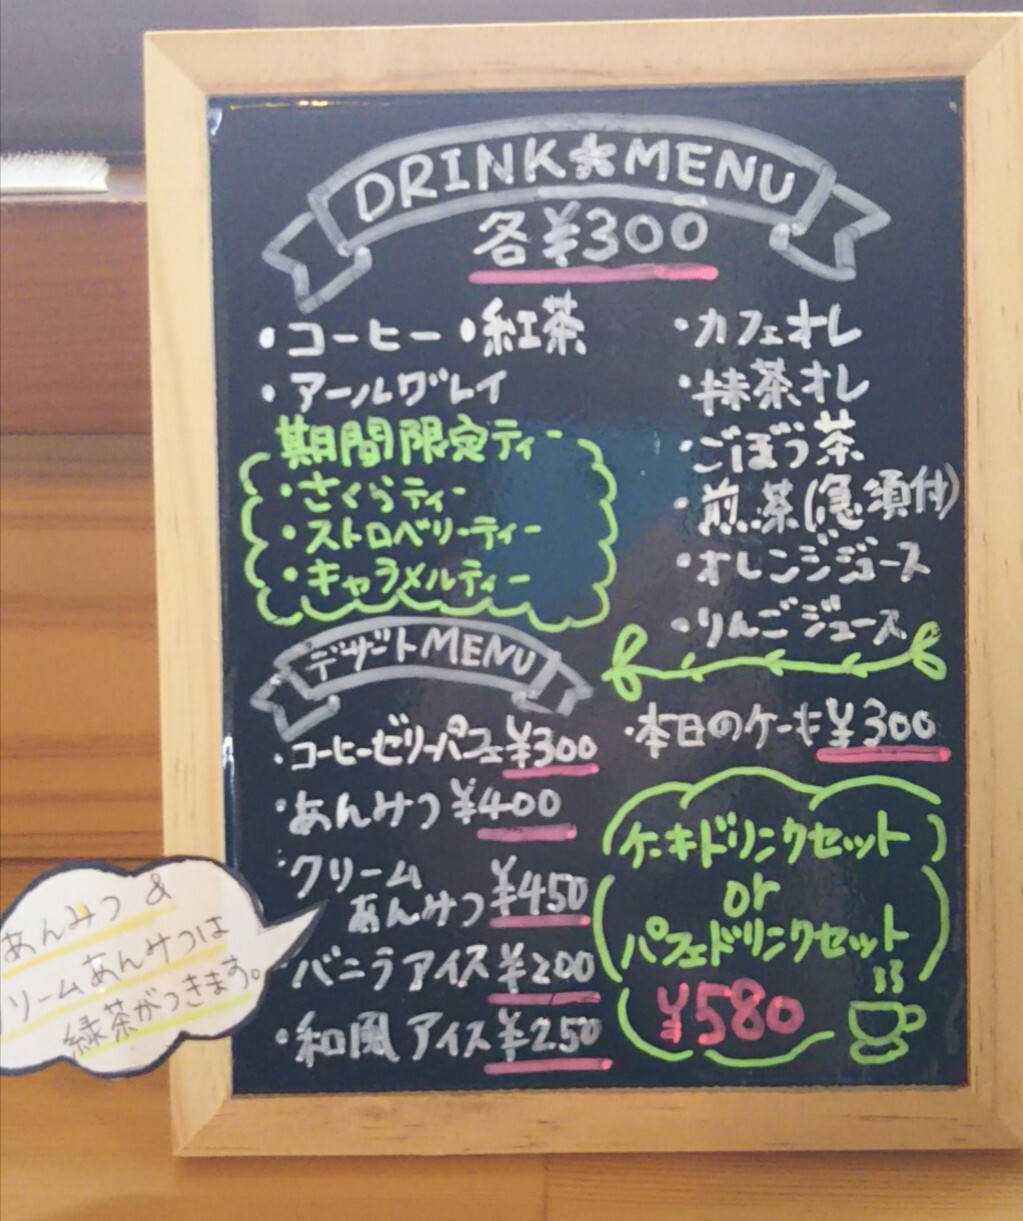 DRINK*MENU
各¥300
・コーヒー ・紅茶
・アールグレイ
期間限定ティー
・さくらティー
・ストロベリーティー
・キャラメルティー
・カフェオレ
・抹茶オレ
・ごぼう茶
・煎茶(急須付)
・オレンジジュース
・りんごジュース
デザートMENU
・コーヒーゼリーパフェ¥300
・あんみつ ¥400
・クリーム
あんみつ ¥450
・バニラアイス ¥200
・和風アイス ¥250
あんみつ &
リームあんみつは
緑茶がつきます。
・本日のケーキ ¥300
ケーキドリンクセット
or
パフェドリンクセット
¥580